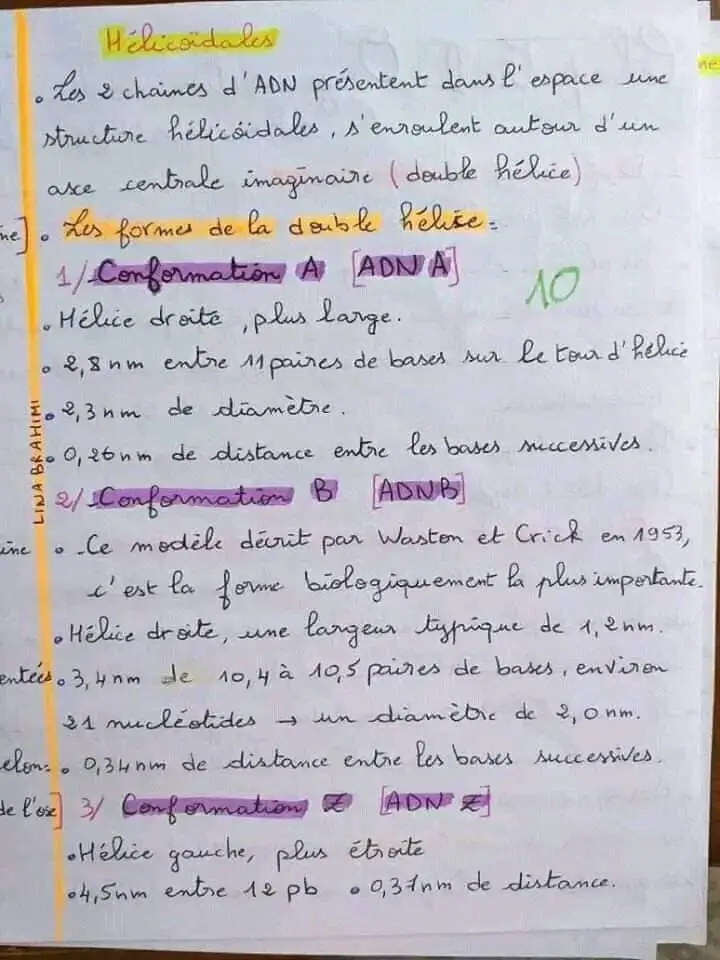 Hélicoïdales
• Les 2 chaines d'ADN présentent dans l'espace une
structure hélicoïdales, s'enroulent autour d'un
axe centrale imaginaire (double hélice)
• Les formes de la double hélice:
1/ Conformation A [ADN A]
10
• Hélice droite, plus large.
• 2,8 nm entre 11 paires de bases sur le tour d'hélice
• 2,3 nm de diamètre.
• 0,26 nm de distance entre les bases successives.
2/ Conformation B [ADN B]
• Ce modèle décrit par Waston et Crick en 1953,
c'est la forme biologiquement la plus importante.
• Hélice droite, une largeur typique de 1,2 nm.
• 3,4 nm de 10,4 à 10,5 paires de bases, environ
21 nucléotides → un diamètre de 2,0 nm.
• 0,34 nm de distance entre les bases successives.
3/ Conformation Z [ADN Z]
• Hélice gauche, plus étroite
• 4,5 nm entre 12 pb • 0,37 nm de distance.
LINA BRAHIMI
ne]
ine
entées
elon:
de l'ose]
ne